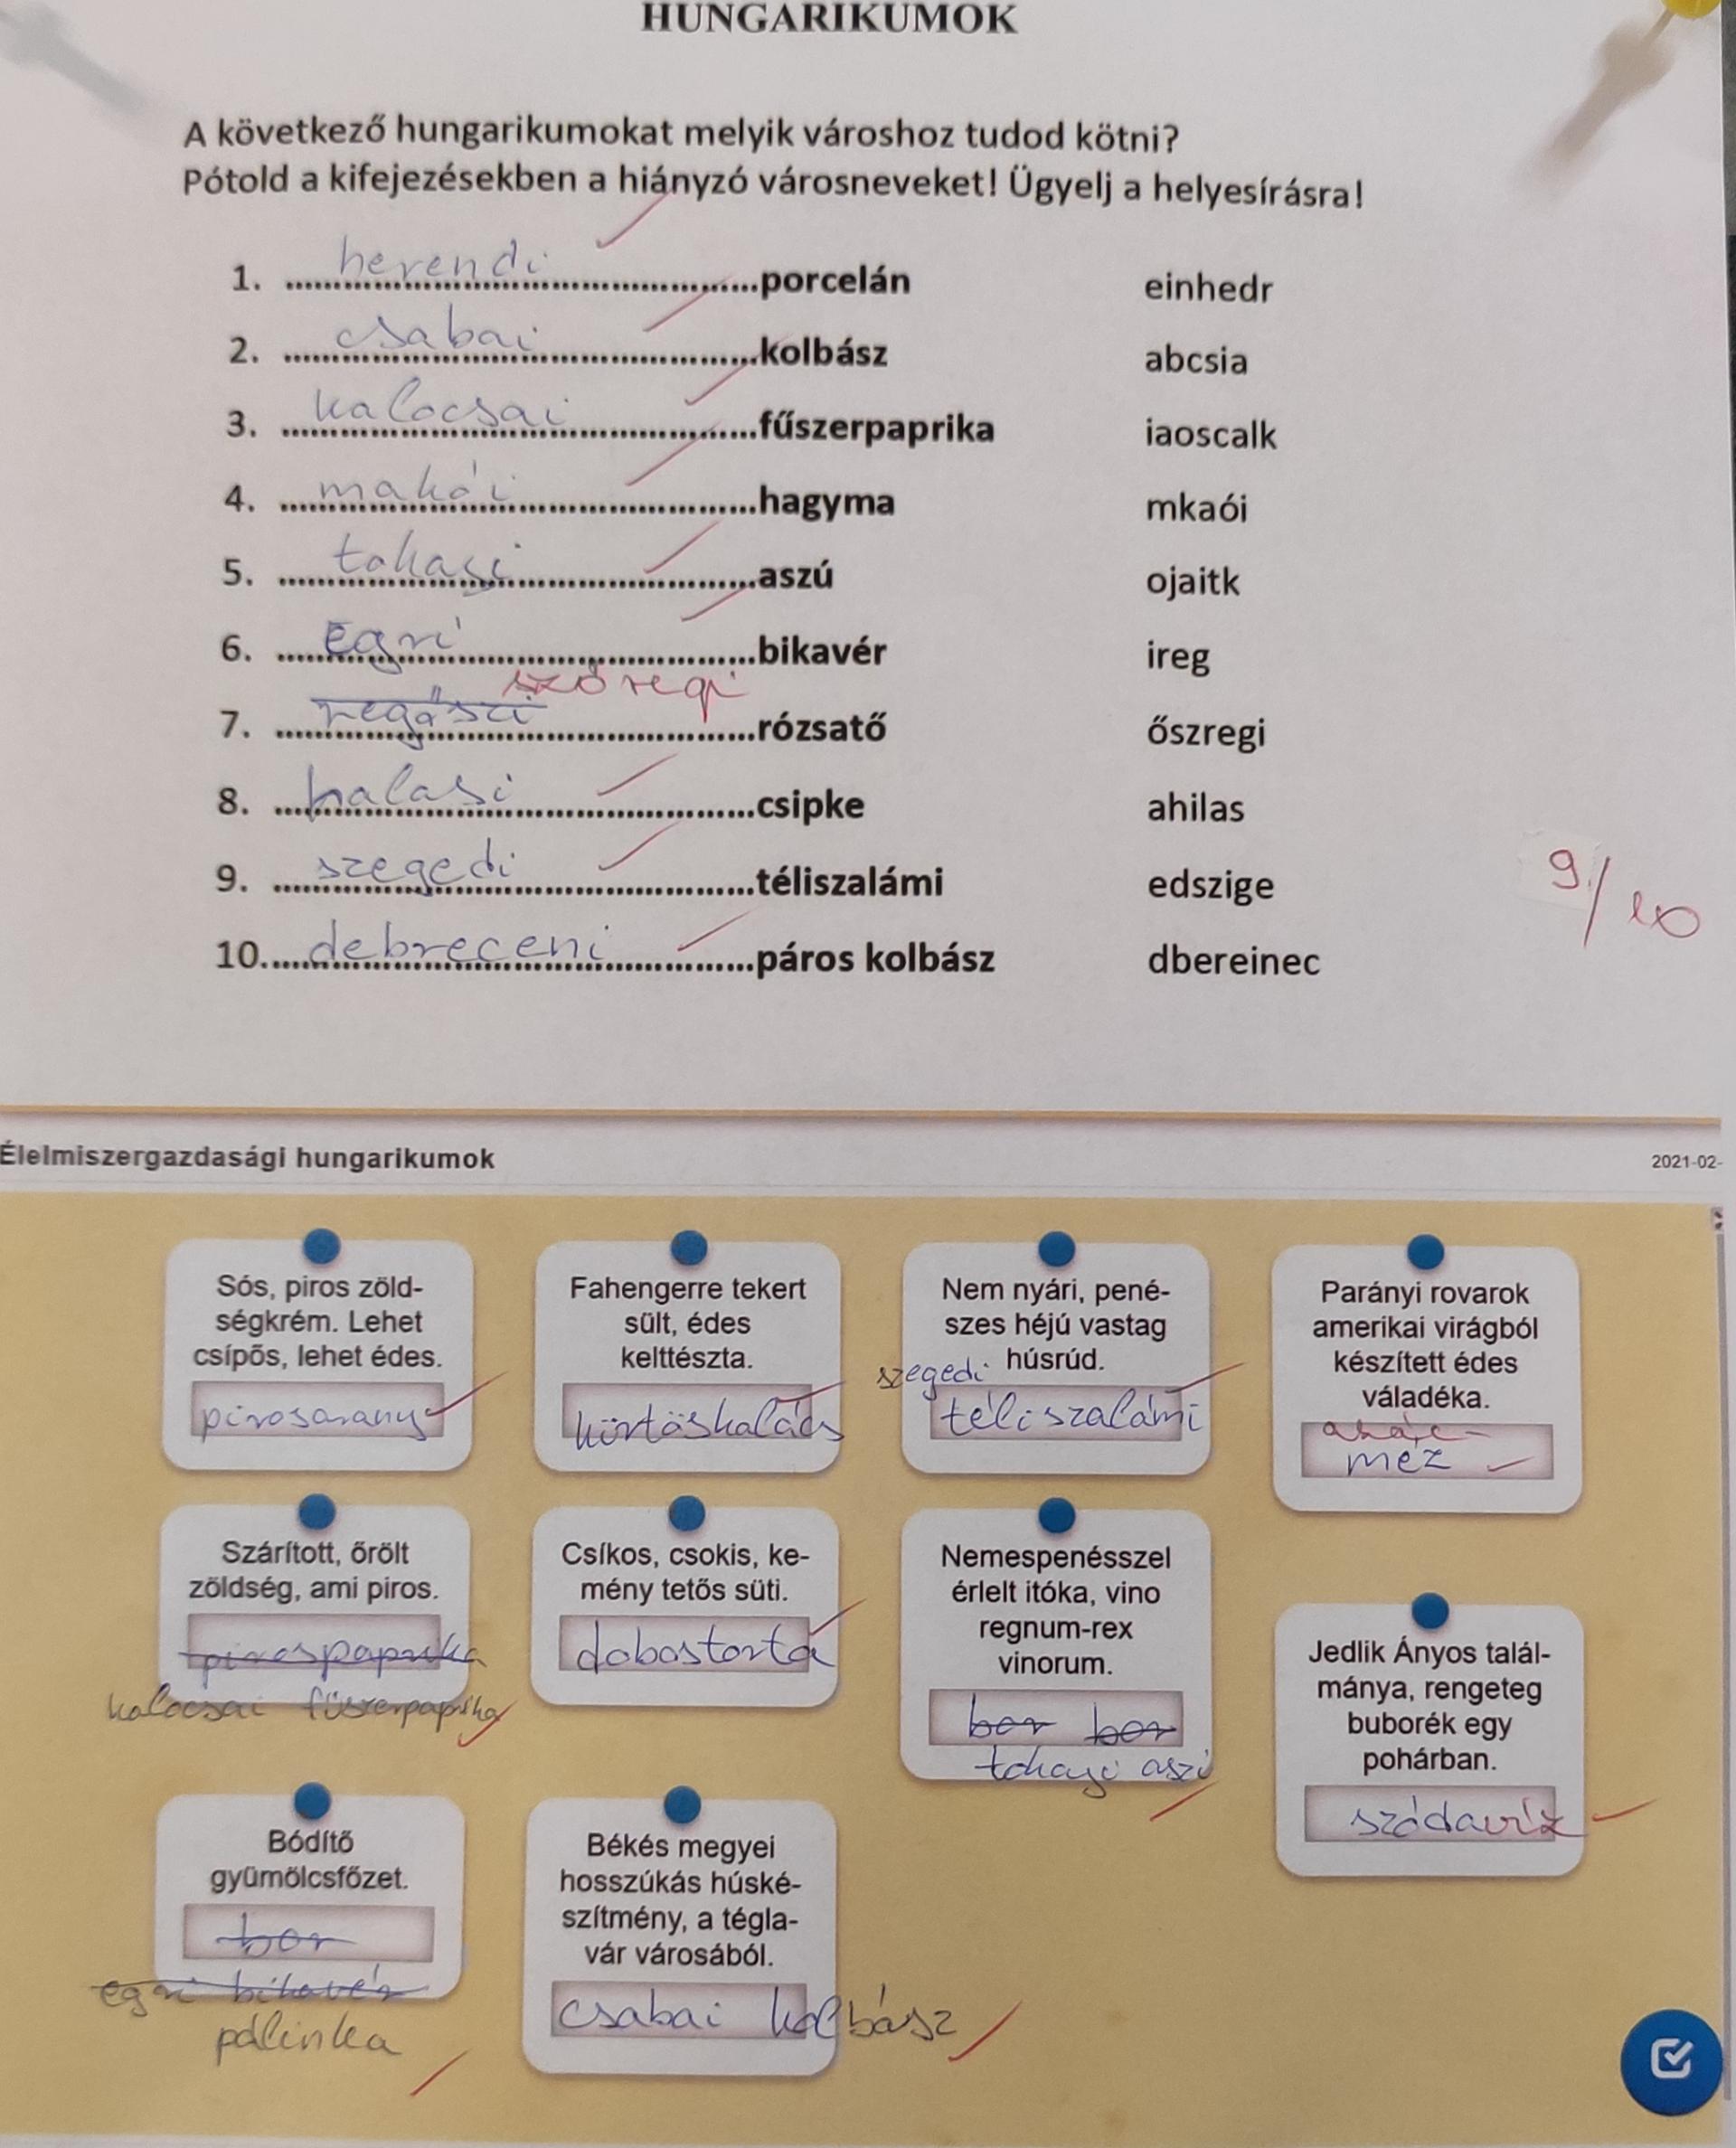 HUNGARIKUMOK
A következő hungarikumokat melyik városhoz tudod kötni?
Pótold a kifejezésekben a hiányzó városneveket! Ügyelj a helyesírásra!
1. herendi porcelán einhedr
2. csabai kolbász abcsia
3. kalocsai fűszerpaprika iaoscalk
4. makói hagyma mkaói
5. tokaji aszú ojaitk
6. Egri bikavér ireg
szőregi
7. regőszi rózsatő őszregi
8. halasi csipke ahilas
9. szegedi téliszalámi edszige
10. debreceni páros kolbász dbereinec
9/10
Élelmiszergazdasági hungarikumok 2021-02-
Sós, piros zöld-
ségkrém. Lehet
csípős, lehet édes.
pirosarany
Fahengerre tekert
sült, édes
kelttészta.
kürtöskalács
Nem nyári, pené-
szes héjú vastag
húsrúd.
szegedi
téliszalámi
Parányi rovarok
amerikai virágból
készített édes
váladéka.
akác-
méz
Szárított, őrölt
zöldség, ami piros.
pirospaprika
kalocsai fűszerpaprika
Csíkos, csokis, ke-
mény tetős süti.
dobostorta
Nemespenésszel
érlelt itóka, vino
regnum-rex
vinorum.
bor bor
tokaji aszú
Jedlik Ányos talál-
mánya, rengeteg
buborék egy
pohárban.
szódavíz
Bódító
gyümölcsfőzet.
bor
egri bikavér
pálinka
Békés megyei
hosszúkás húské-
szítmény, a tégla-
vár városából.
csabai kolbász